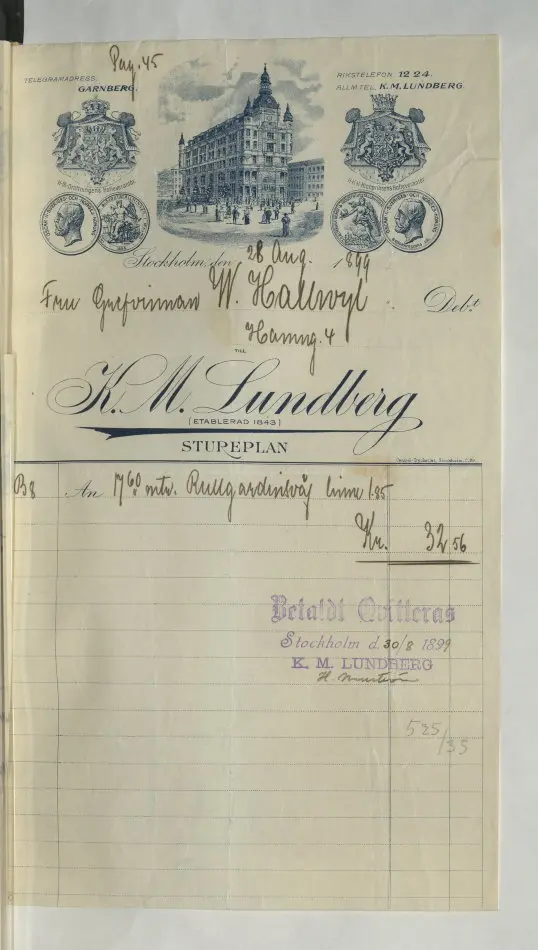 Pag. 45
TELEGRAMADRESS,
GARNBERG.
RIKSTELEFON 12 24.
ALLM TEL. K. M. LUNDBERG.
Stockholm, den 28 Aug. 1899
Fru Grefvinnan W. Hallwyl Debt
Hamng. 4
TILL
K. M. Lundberg
(ETABLERAD 1843)
STUREPLAN
B8 An 17 60 mtr. Rullgardinsväf linne 1.85
Kr. 32 56
Betaldt Qvitteras
Stockholm d. 30/8 1899
K. M. LUNDBERG
H.
525/35